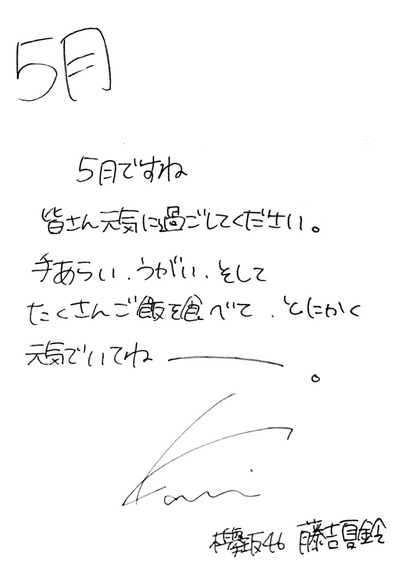 5月
5月ですね
皆さん元気に過ごしてください。
手あらい、うがい、そして
たくさんご飯を食べて、とにかく
元気でいてねー。
Karin
欅坂46 藤吉夏鈴